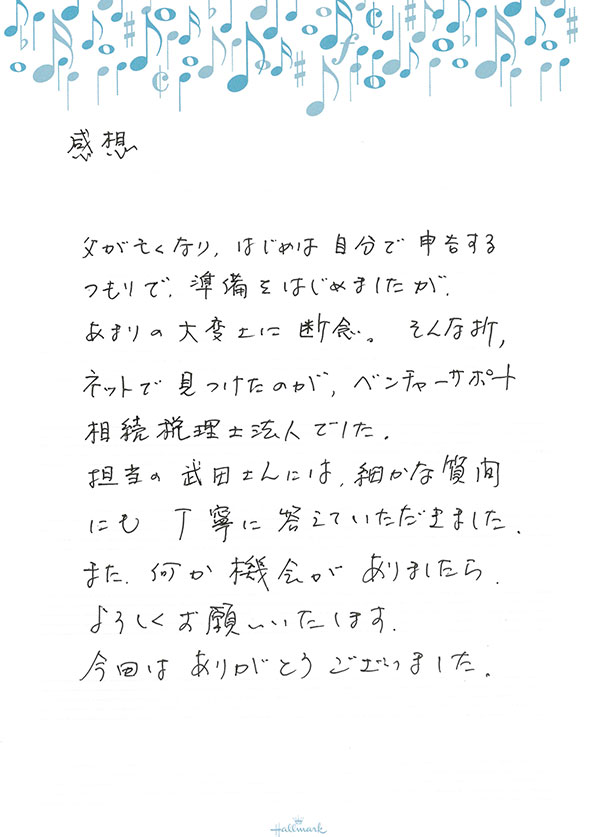 感想
父が亡くなり、はじめは 自分で 申告する
つもりで、準備をはじめましたが、
あまりの大変さに断念。 そんな折、
ネットで見つけたのが、ベンチャーサポート
相続税理士法人でした。
担当の武田さんには、細かな質問
にも 丁寧に答えていただきました。
また、何か機会が ありましたら、
よろしくお願いいたします。
今回は ありがとう ございました。
Hallmark